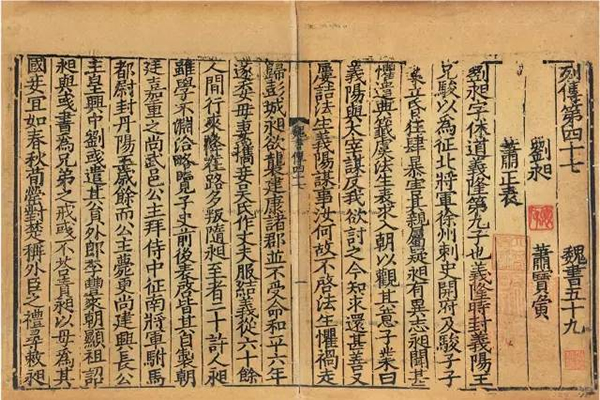 列傳第四十七　魏書五十九
劉昶　蕭寶夤
蕭正表
劉昶字休道義隆第九子也義隆時封義陽王
兄駿以為征北將軍徐州刺史開府及駿子子
業立昏狂肆暴害其親屬疑昶有異志昶聞甚
懼遣典籤虞法生表求入朝以觀其意子業曰
義陽與太宰謀反我欲討之今知求還甚善又
屢詰法生義陽謀事汝何故不啓法生懼禍走
歸彭城昶欲襲建康諸郡並不受命和平六年
遂委母妻攜妾吳氏作丈夫服結義從六十餘
人間行來降在路多叛隨昶至者二十許人昶
雖學不淵洽略覽子史前後表啓皆其自製朝
廷嘉重之尚武邑公主拜侍中征南將軍駙馬
都尉封丹陽王歲餘而公主薨更尚建興長公
主皇興中劉彧遣其員外郎李豐來朝顯祖詔
昶與彧書為兄弟之戒彧不答責昶以母為其
國妾宜如春秋荀罃對楚稱外臣之禮尋敕昶